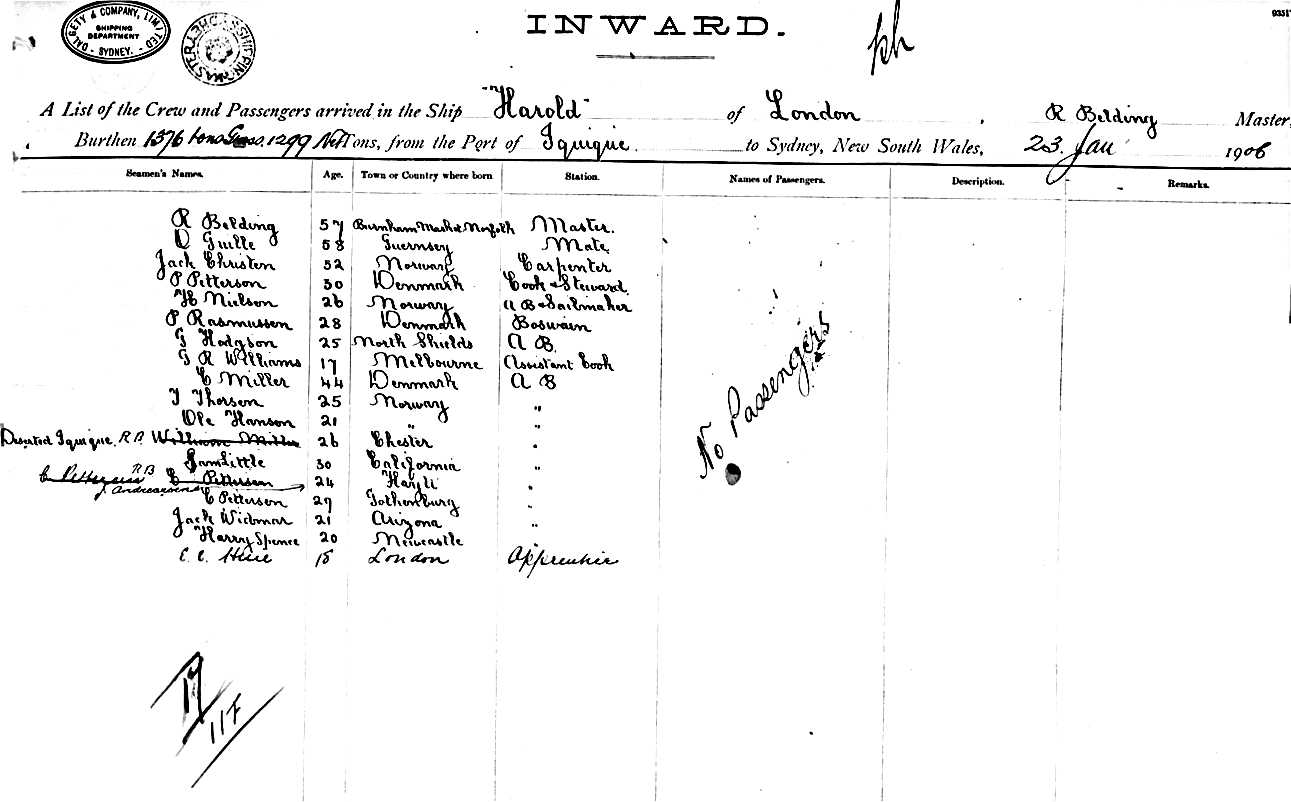 DALGETY & COMPANY, LIMITED
SHIPPING DEPARTMENT
SYDNEY.
SHIPPING MASTER
INWARD.
A List of the Crew and Passengers arrived in the Ship "Harold" of London, R Belding Master,
Burthen 1376 tons Gross. 1299 Nett Tons, from the Port of Iquique to Sydney, New South Wales, 23 Jan 1906
Seamen's Names. Age. Town or Country where born Station. Names of Passengers. Description. Remarks.
R Belding 57 Burnham Market Norfolk Master.
D Guille 58 Guernsey Mate
Jack Christen 32 Norway Carpenter
P Petterson 30 Denmark Cook & Steward
H Nielson 26 Norway A B & Sailmaker
P Rasmussen 28 Denmark Boswain
G Hodgson 25 North Shields A B.
G R Williams 17 Melbourne Assistant Cook
C Miller 44 Denmark A B
T Thorsen 25 Norway "
Ole Hanson 21 " "
Deserted Iquique. R.B. William Miller 26 Chester "
Sam Little 30 California "
C Petterson R B C Petterson 24 Hayti "
J. Andreassen
C Petterson 27 Gothenburg "
Jack Widmar 21 Arizona "
Harry Spence 20 Newcastle "
C. C. 18 London Apprentice
No Passengers
17
11 F